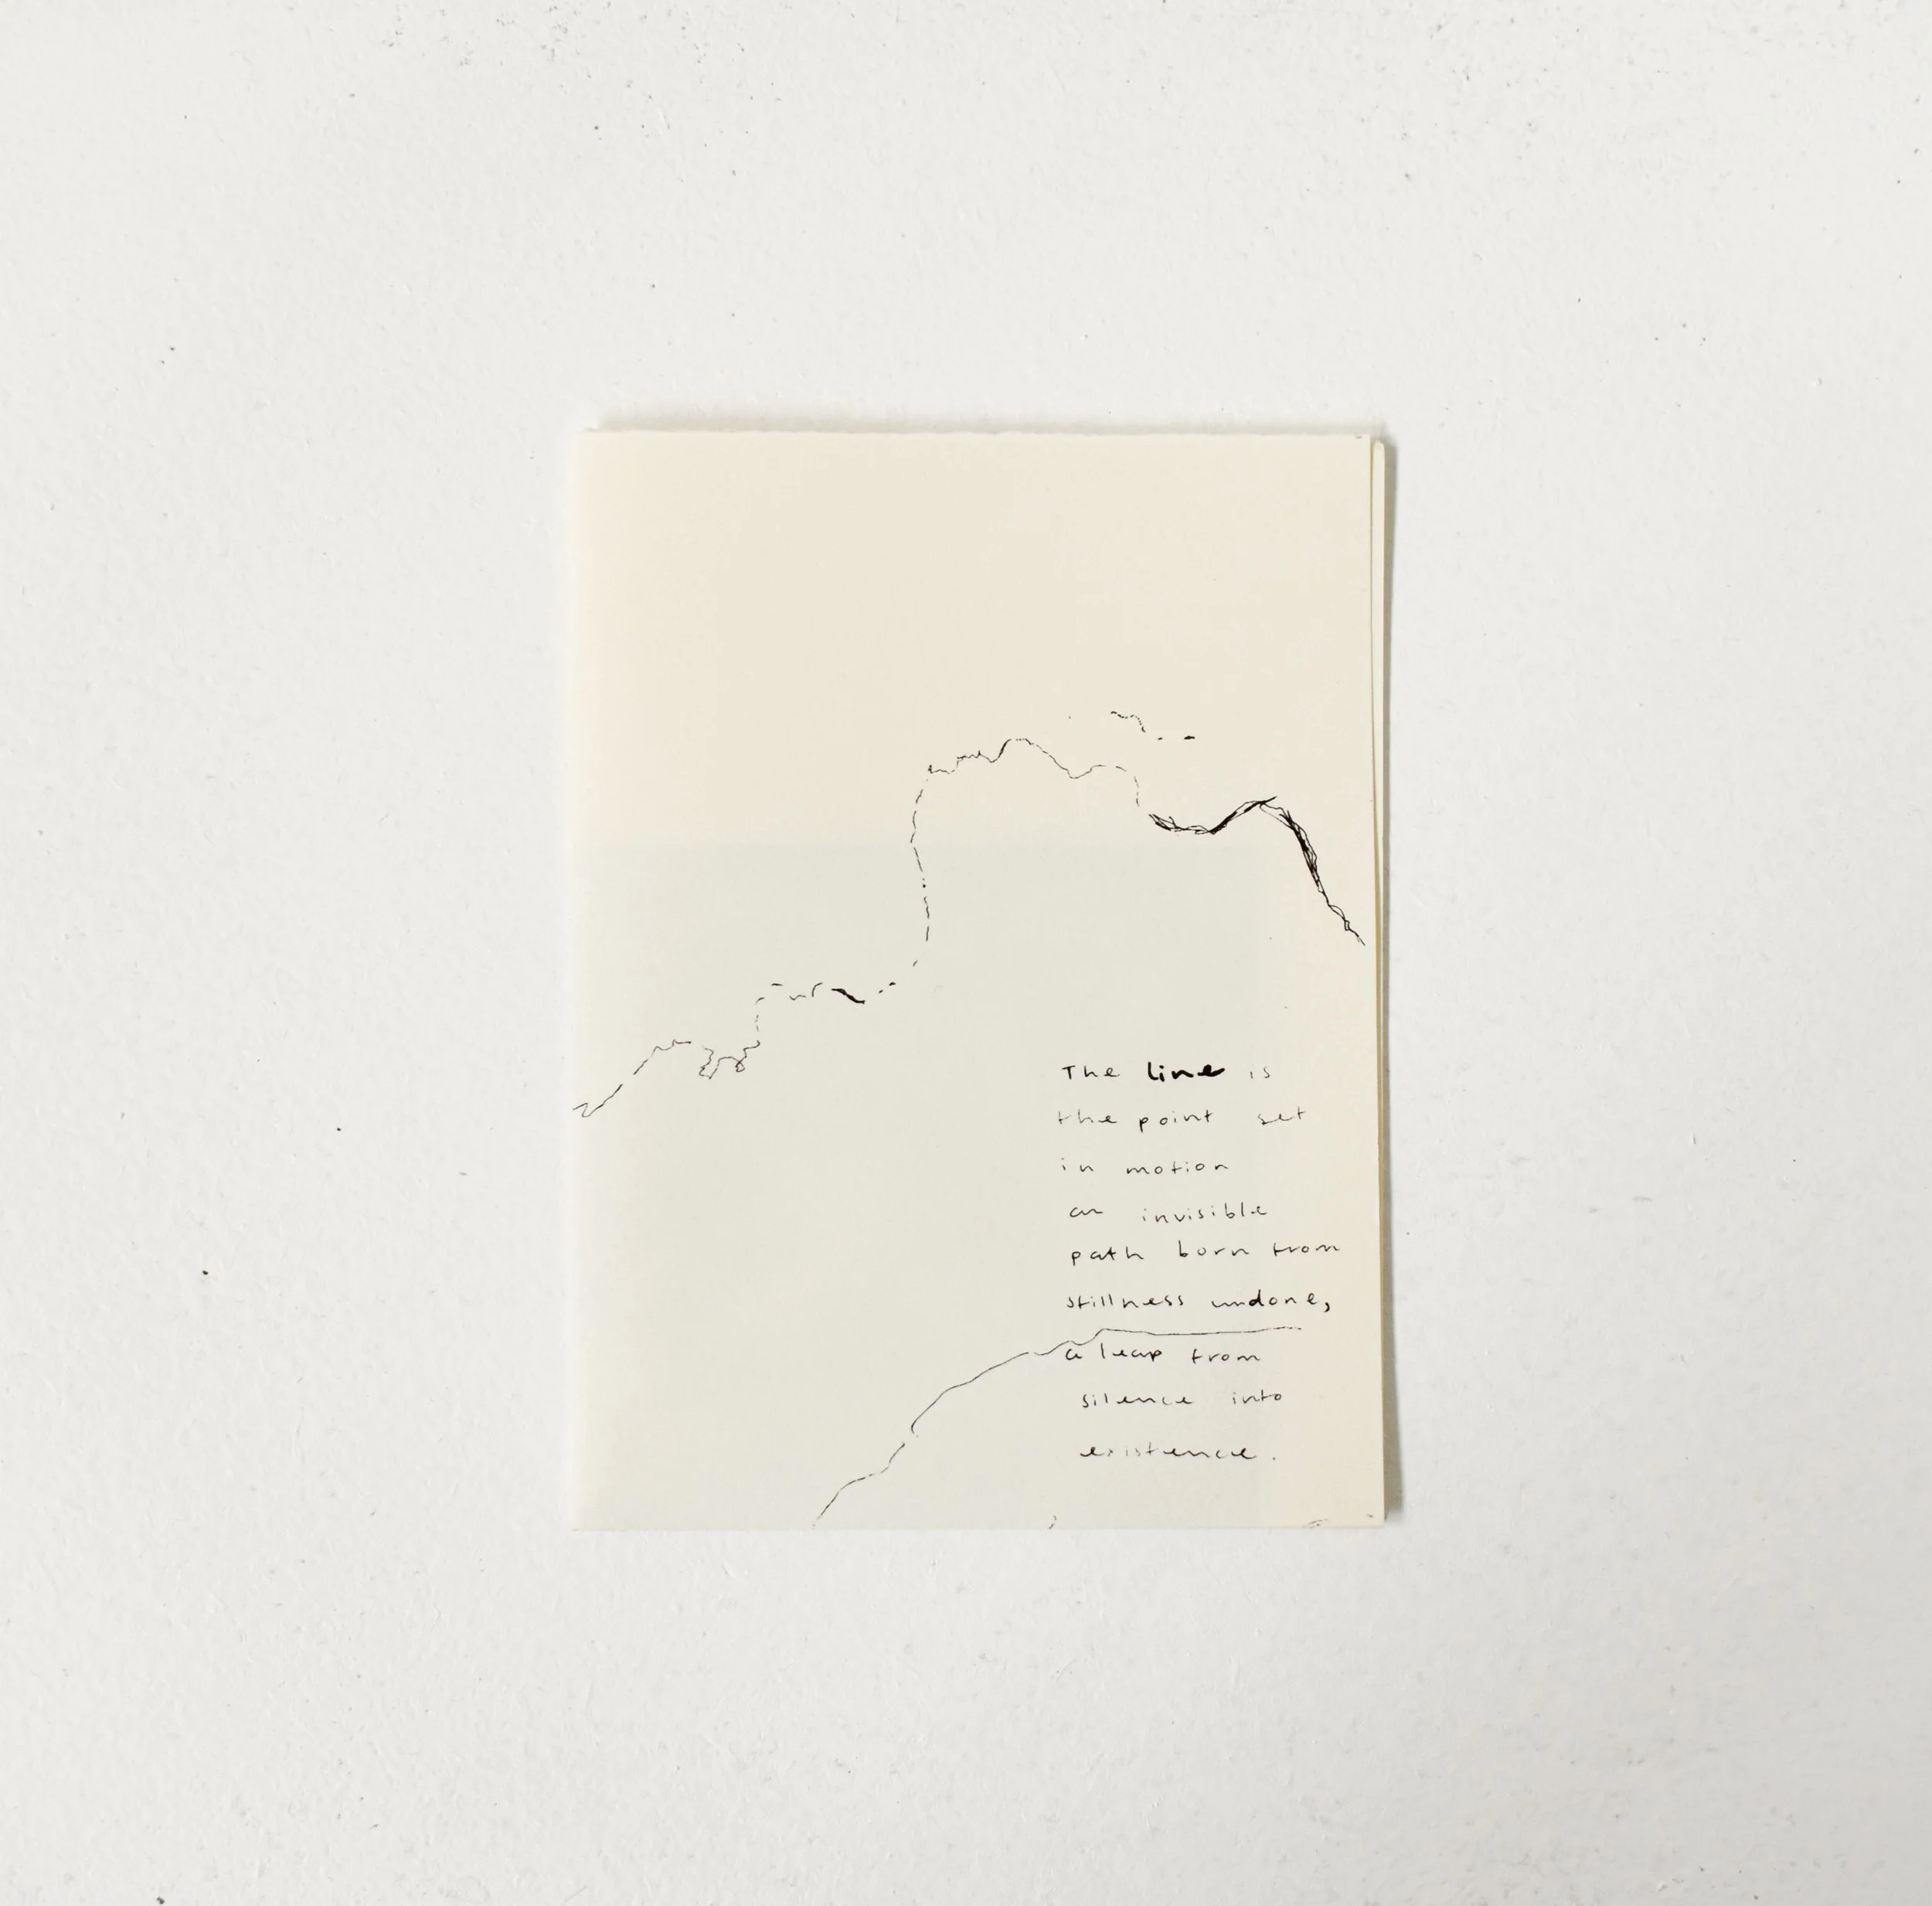 The line is
the point set
in motion
an invisible
path born from
stillness undone,
a leap from
silence into
existence.